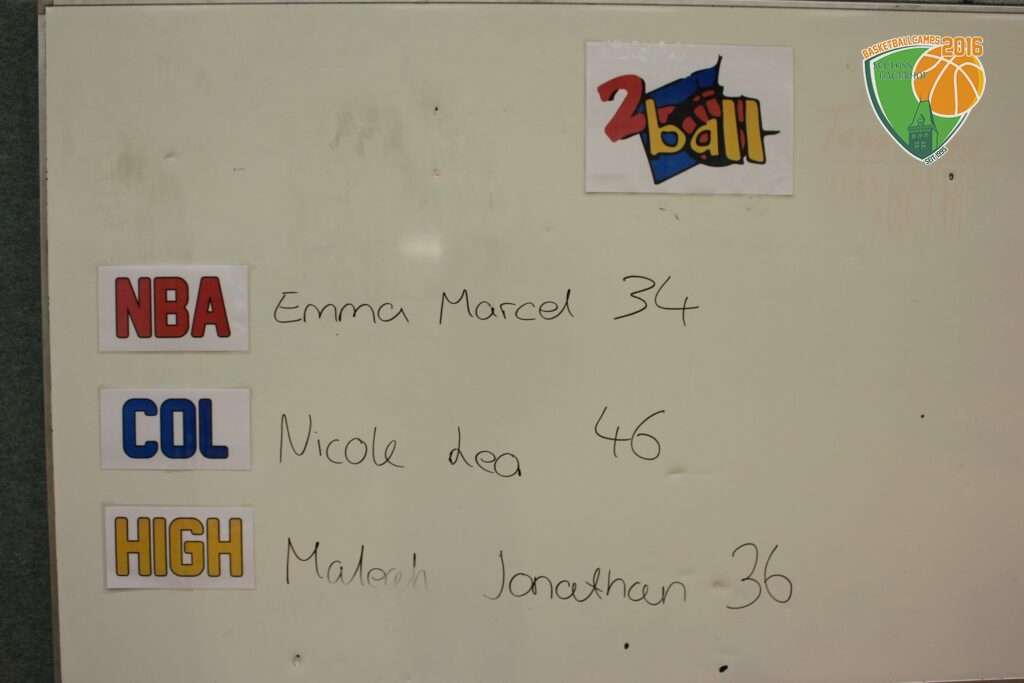 BASKETBALLCAMPS 2016
SCHLOSS HAGERHOF
SEIT 1995
2ball
NBA Emma Marcel 34
COL Nicole Lea 46
HIGH Jonathan 36